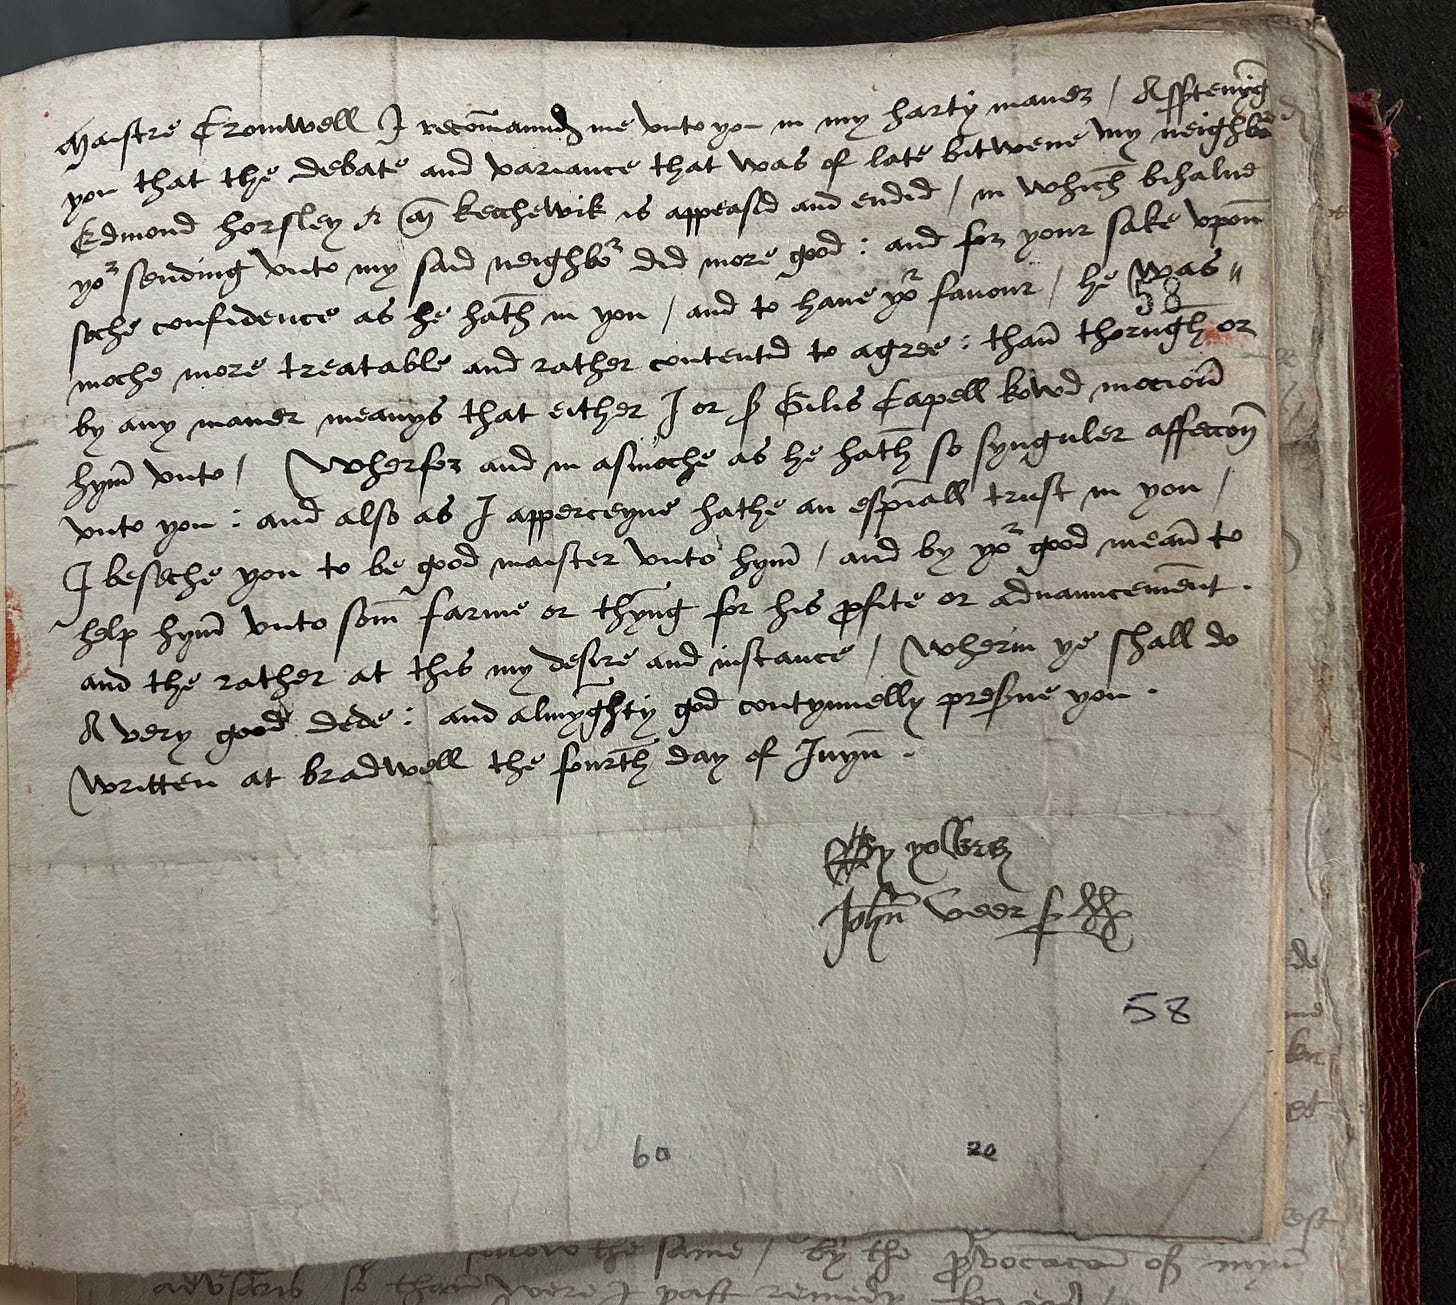 Maistre Cromwell I recommaund me unto you in my harty maner / Assertenyng
you that the debate and variance that was of late bitwene my neighbor
Edmond horsley & Mr kecchewik is appeasid and endid / in which bihalue
yor sending unto my said neighbor did more good : and for your sake upon
soche confidence as he hath in you / and to haue yor favour / he was
58
moche more treatable and rather contentid to agree : than thorugh or
by any maner meanys that either I or Sr Gilis Capell kowd mocion
hym unto / Wherfor and in asmoche as he hath so synguler affeccon
unto you : and also as I apperceyue hathe an especiall trust in you /
I beseche you to be good maister unto hym / and by yor good mean to
help hym unto som farme or thyng for his profite or aduauncement .
and the rather at this my desire and instance / Wherin ye shall do
A very good dede : and almyghty god contynuelly preserue you .
Written at bradwell the fourth day of Iuyn .
By yowers
John Veer
58
60
20
know the same / by the provocacon of myn
adversaris so than were I past remedy